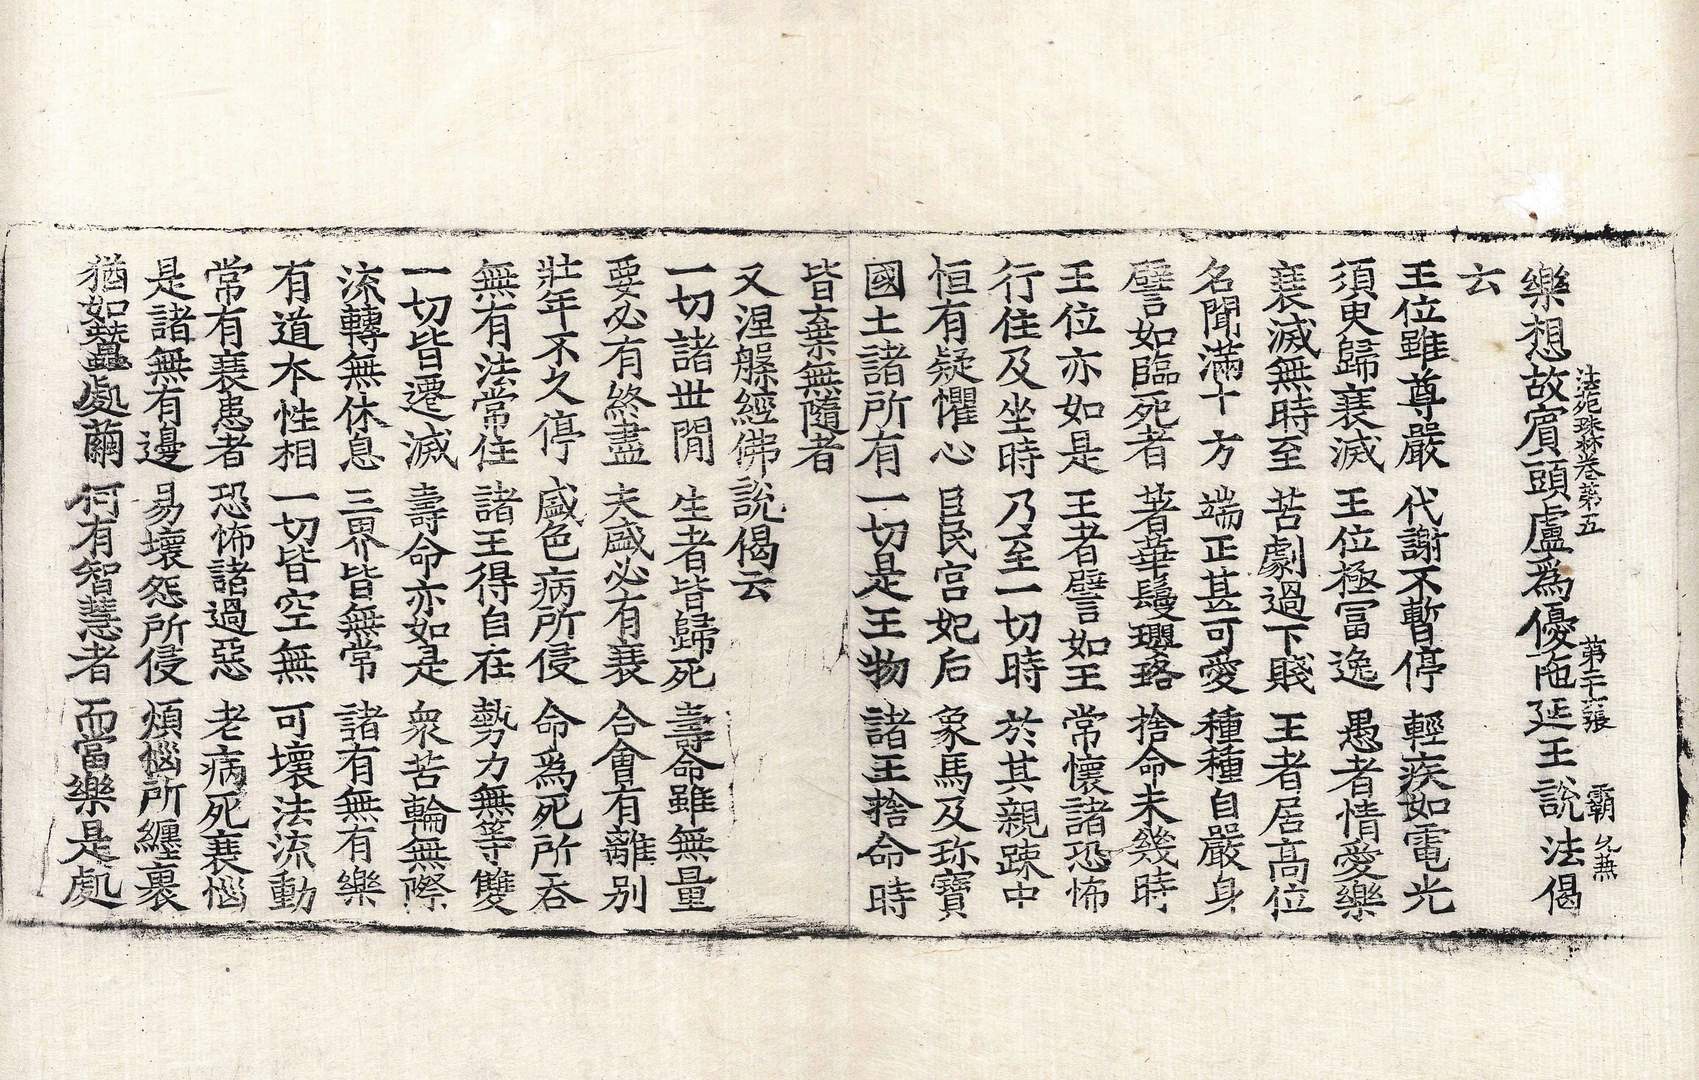 樂想故賓頭盧爲優陁延王說法偈
法苑珠林卷第五 第二十六張 覇
云
王位雖尊嚴 代謝不暫停 輕疾如電光
須臾歸衰滅 王位極冨逸 愚者情愛樂
衰滅無時至 苦劇過下賤 王者居高位
名聞滿十方 端正甚可愛 種種自嚴身
譬如臨死者 著華鬘瓔珞 捨命未幾時
王位亦如是 王者譬如王 常懷諸恐怖
行住及坐時 乃至一切時 於其親踈中
恒有疑懼心 臣民宫妃后 象馬及珎寶
國土諸所有 一切是王物 諸王捨命時
皆棄無隨者
又涅槃經佛說偈云
一切諸世閒 生者皆歸死 壽命雖無量
要必有終盡 夫盛必有衰 合會有離别
壯年不久停 盛色病所侵 命爲死所吞
無有法常住 諸王得自在 勢力無等雙
一切皆遷滅 壽命亦如是 衆苦輪無際
流轉無休息 三界皆無常 諸有無有樂
有道本性相 一切皆空無 可壞法流動
常有衰患者 恐怖諸過惡 老病死衰惱
是諸無有邊 易壞怨所侵 煩惱所纏裹
猶如蠶處繭 何有智慧者 而當樂是處